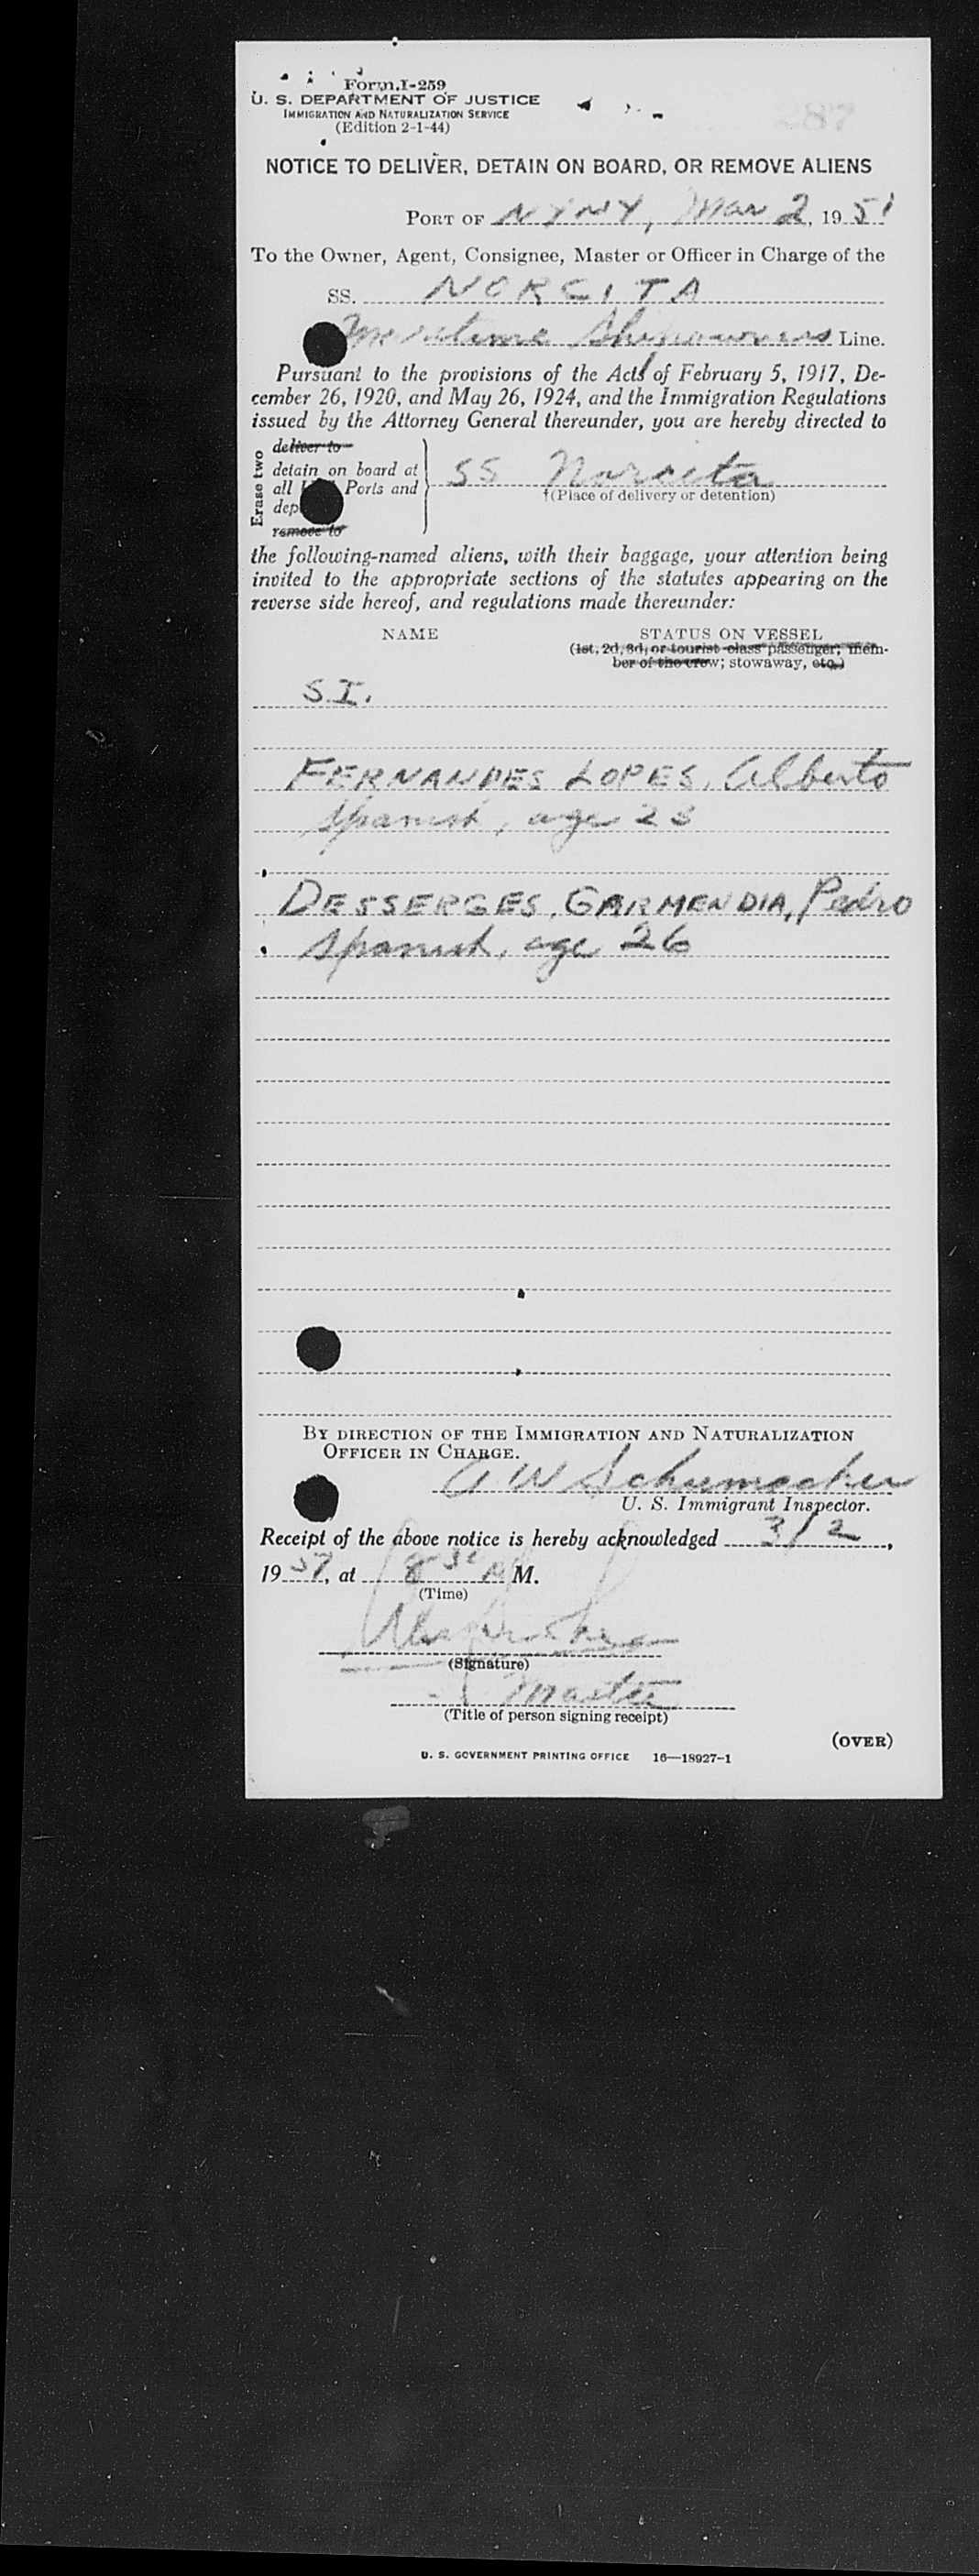 Form I-259
U. S. DEPARTMENT OF JUSTICE
IMMIGRATION AND NATURALIZATION SERVICE
(Edition 2-1-44)
NOTICE TO DELIVER, DETAIN ON BOARD, OR REMOVE ALIENS
PORT OF NYNY, Mar 2, 1951
To the Owner, Agent, Consignee, Master or Officer in Charge of the
SS. NORCITA
Maritime Shipowners Line.
Pursuant to the provisions of the Acts of February 5, 1917, De-
cember 26, 1920, and May 26, 1924, and the Immigration Regulations
issued by the Attorney General thereunder, you are hereby directed to
Erase two
deliver to
detain on board at
all Ports and
dep
remove to
SS Norcita
†(Place of delivery or detention)
the following-named aliens, with their baggage, your attention being
invited to the appropriate sections of the statutes appearing on the
reverse side hereof, and regulations made thereunder:
NAME STATUS ON VESSEL
(1st, 2d, 3d, or tourist class passenger; mem-
ber of the crew; stowaway, etc.)
S.I.
FERNANDES LOPES, Alberto
Spanish, age 23
DESSERGES, GARMENDIA, Pedro
Spanish, age 26
BY DIRECTION OF THE IMMIGRATION AND NATURALIZATION
OFFICER IN CHARGE.
A W Schumacher
U. S. Immigrant Inspector.
Receipt of the above notice is hereby acknowledged 3/2,
19, at 8 30 A M.
(Time)
(Signature)
Master
(Title of person signing receipt)
(OVER)
U. S. GOVERNMENT PRINTING OFFICE 16—18927-1